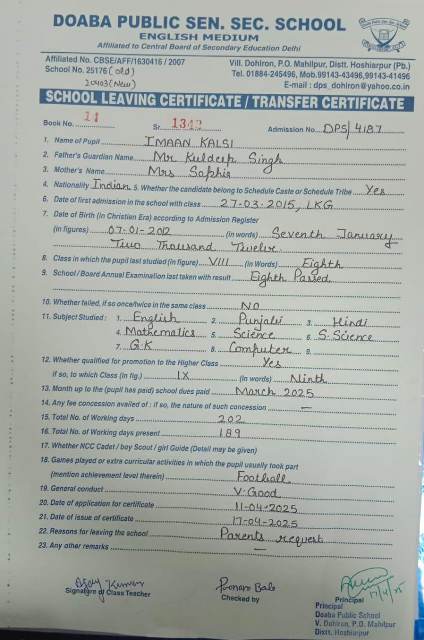 DOABA PUBLIC SEN. SEC. SCHOOL
ENGLISH MEDIUM
Affiliated to Central Board of Secondary Education Delhi
Affiliated No. CBSE/AFF/1630416 / 2007
School No. 25176 (old)
20403 (New)
Vill. Dohlron, P.O. Mahilpur, Distt. Hoshiarpur (Pb.)
Tel. 01884-245496, Mob.99143-43496,99143-41496
E-mail : dps_dohlron@yahoo.co.in
SCHOOL LEAVING CERTIFICATE / TRANSFER CERTIFICATE
Book No. 14 Sr. 1342 Admission No. DPS/4187
1. Name of Pupil IMAAN KALSI
2. Father's Guardian Name Mr Kuldeep Singh
3. Mother's Name Mrs Saphia
4. Nationality Indian 5. Whether the candidate belong to Schedule Caste or Schedule Tribe Yes
6. Date of first admission in the school with class 27-03-2015, LKG
7. Date of Birth (in Christien Era) according to Admission Register
(in figures) 07-01-2012 (in words) Seventh January
Two Thousand Twelve
8. Class in which the pupil last studied (in figure) VIII (in Words) Eighth
9. School / Board Annual Examination last taken with result Eighth Passed
10. Whether failed, if so once/twice in the same class NO
11. Subject Studied : 1. English 2. Punjabi 3. Hindi
4. Mathematics 5. Science 6. S. Science
7. G.K 8. Computer 9.
12. Whether qualified for promotion to the Higher Class Yes
if so, to which Class (in fig.) IX (in words) Ninth
13. Month up to the (pupil has paid) school dues paid March 2025
14. Any fee concession availed of : if so, the nature of such concession —
15. Total No. of Working days 202
16. Total No. of Working days present 189
17. Whether NCC Cadet / boy Scout / girl Guide (Detail may be given)
18. Games played or extra curricular activities in which the pupil usually took part
(mention achievement level therein) Football
19. General conduct V. Good
20. Date of application for certificate 11-04-2025
21. Date of issue of certificate 17-04-2025
22. Reasons for leaving the school Parents request
23. Any other remarks —
Ajay Kumar
Signature of Class Teacher
Poonam Bala
Checked by
17/4/25
Principal
Principal
Doaba Public School
V. Dohlron, P.O. Mahilpur
Distt. Hoshiarpur